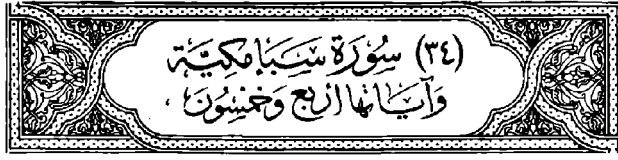 (٣٤) سُورَة سَبَإ مَكِيَّة
وَآيَاتُهَا ارْبَع وَخَمْسُونَ